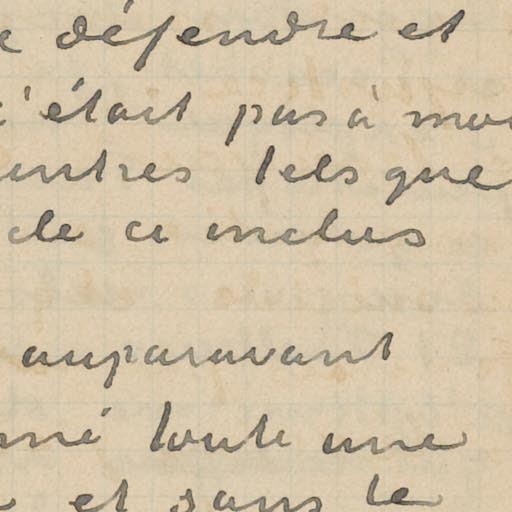 défendre et
'était pas à moi
autres tels que
cle ci inclus
auparavant
né toute une
et sans le